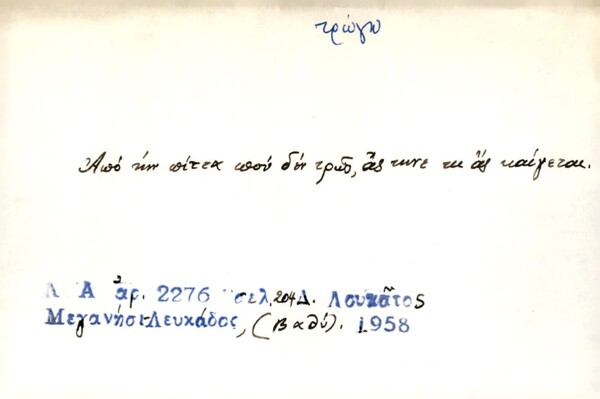 τρώγω
Από την πίττα που δεν τρως, άς τηνε κι άς καίγεται.
Λ Α ἀρ. 2276 σελ. 204 Δ. Λουκᾶτος
Μεγανήσι-Λευκάδος, (Βαθύ). 1958